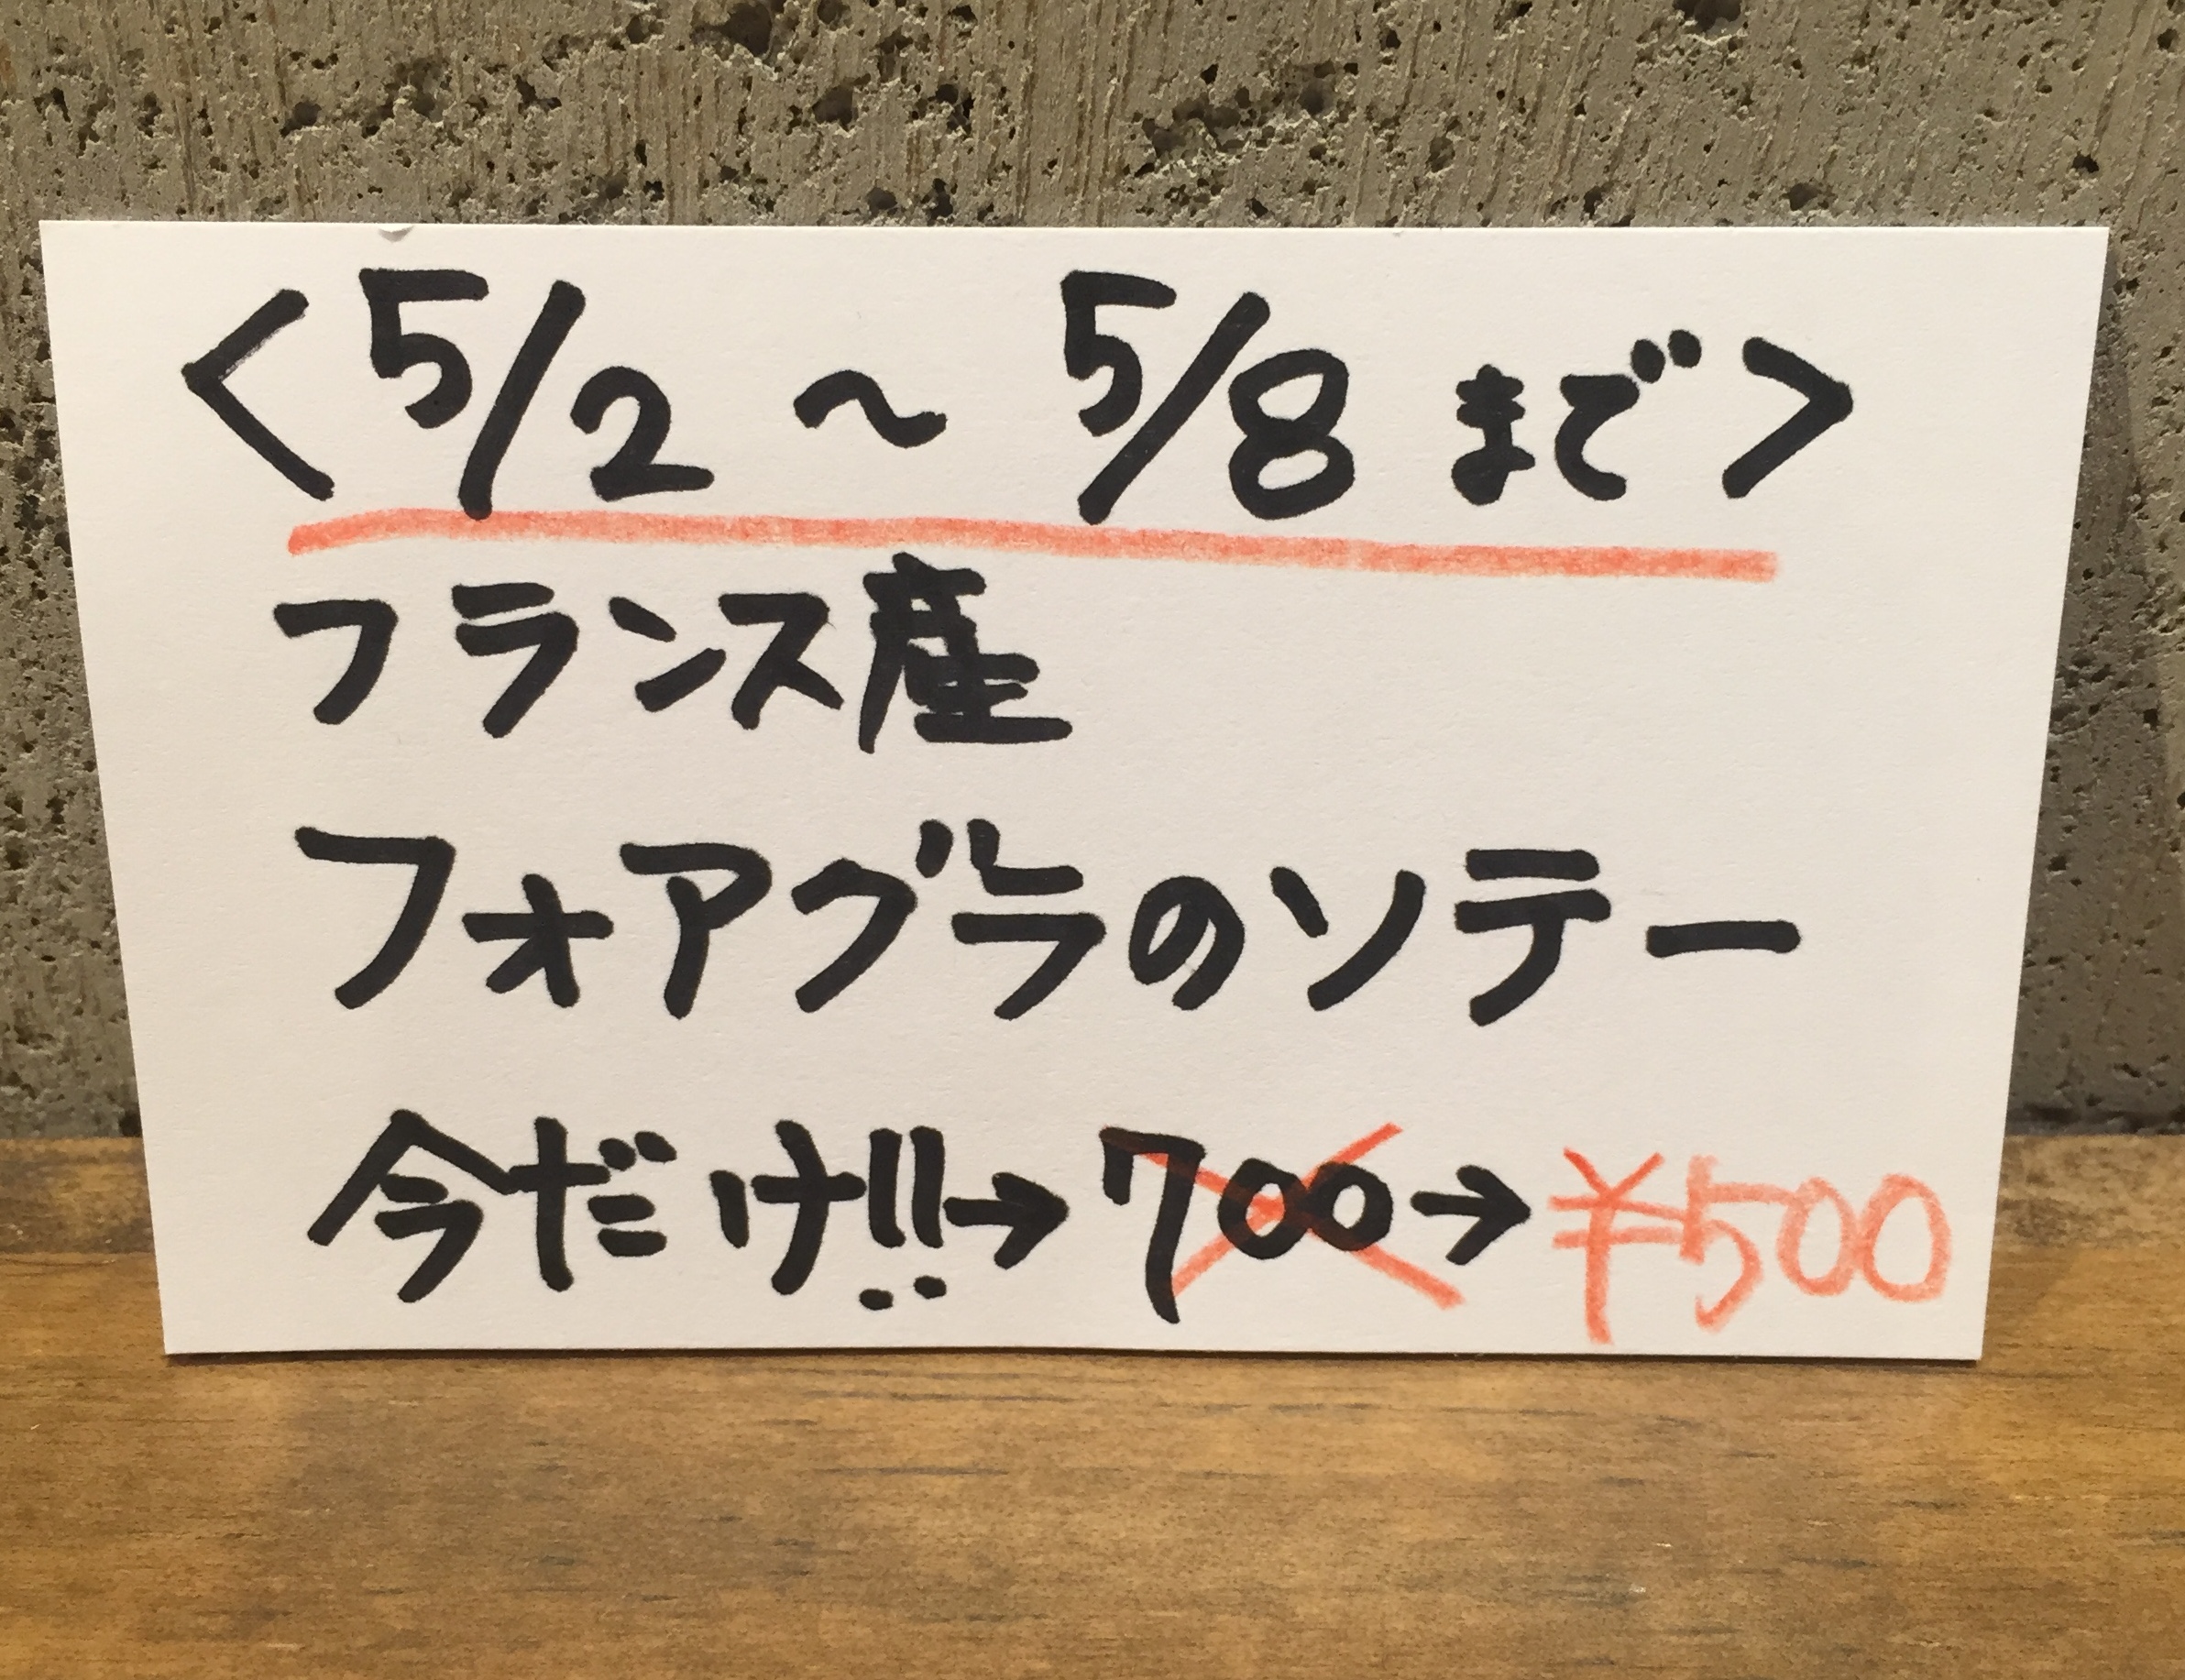 <5/2 〜 5/8 まで>
フランス産
フォアグラのソテー
今だけ!!→700→¥500